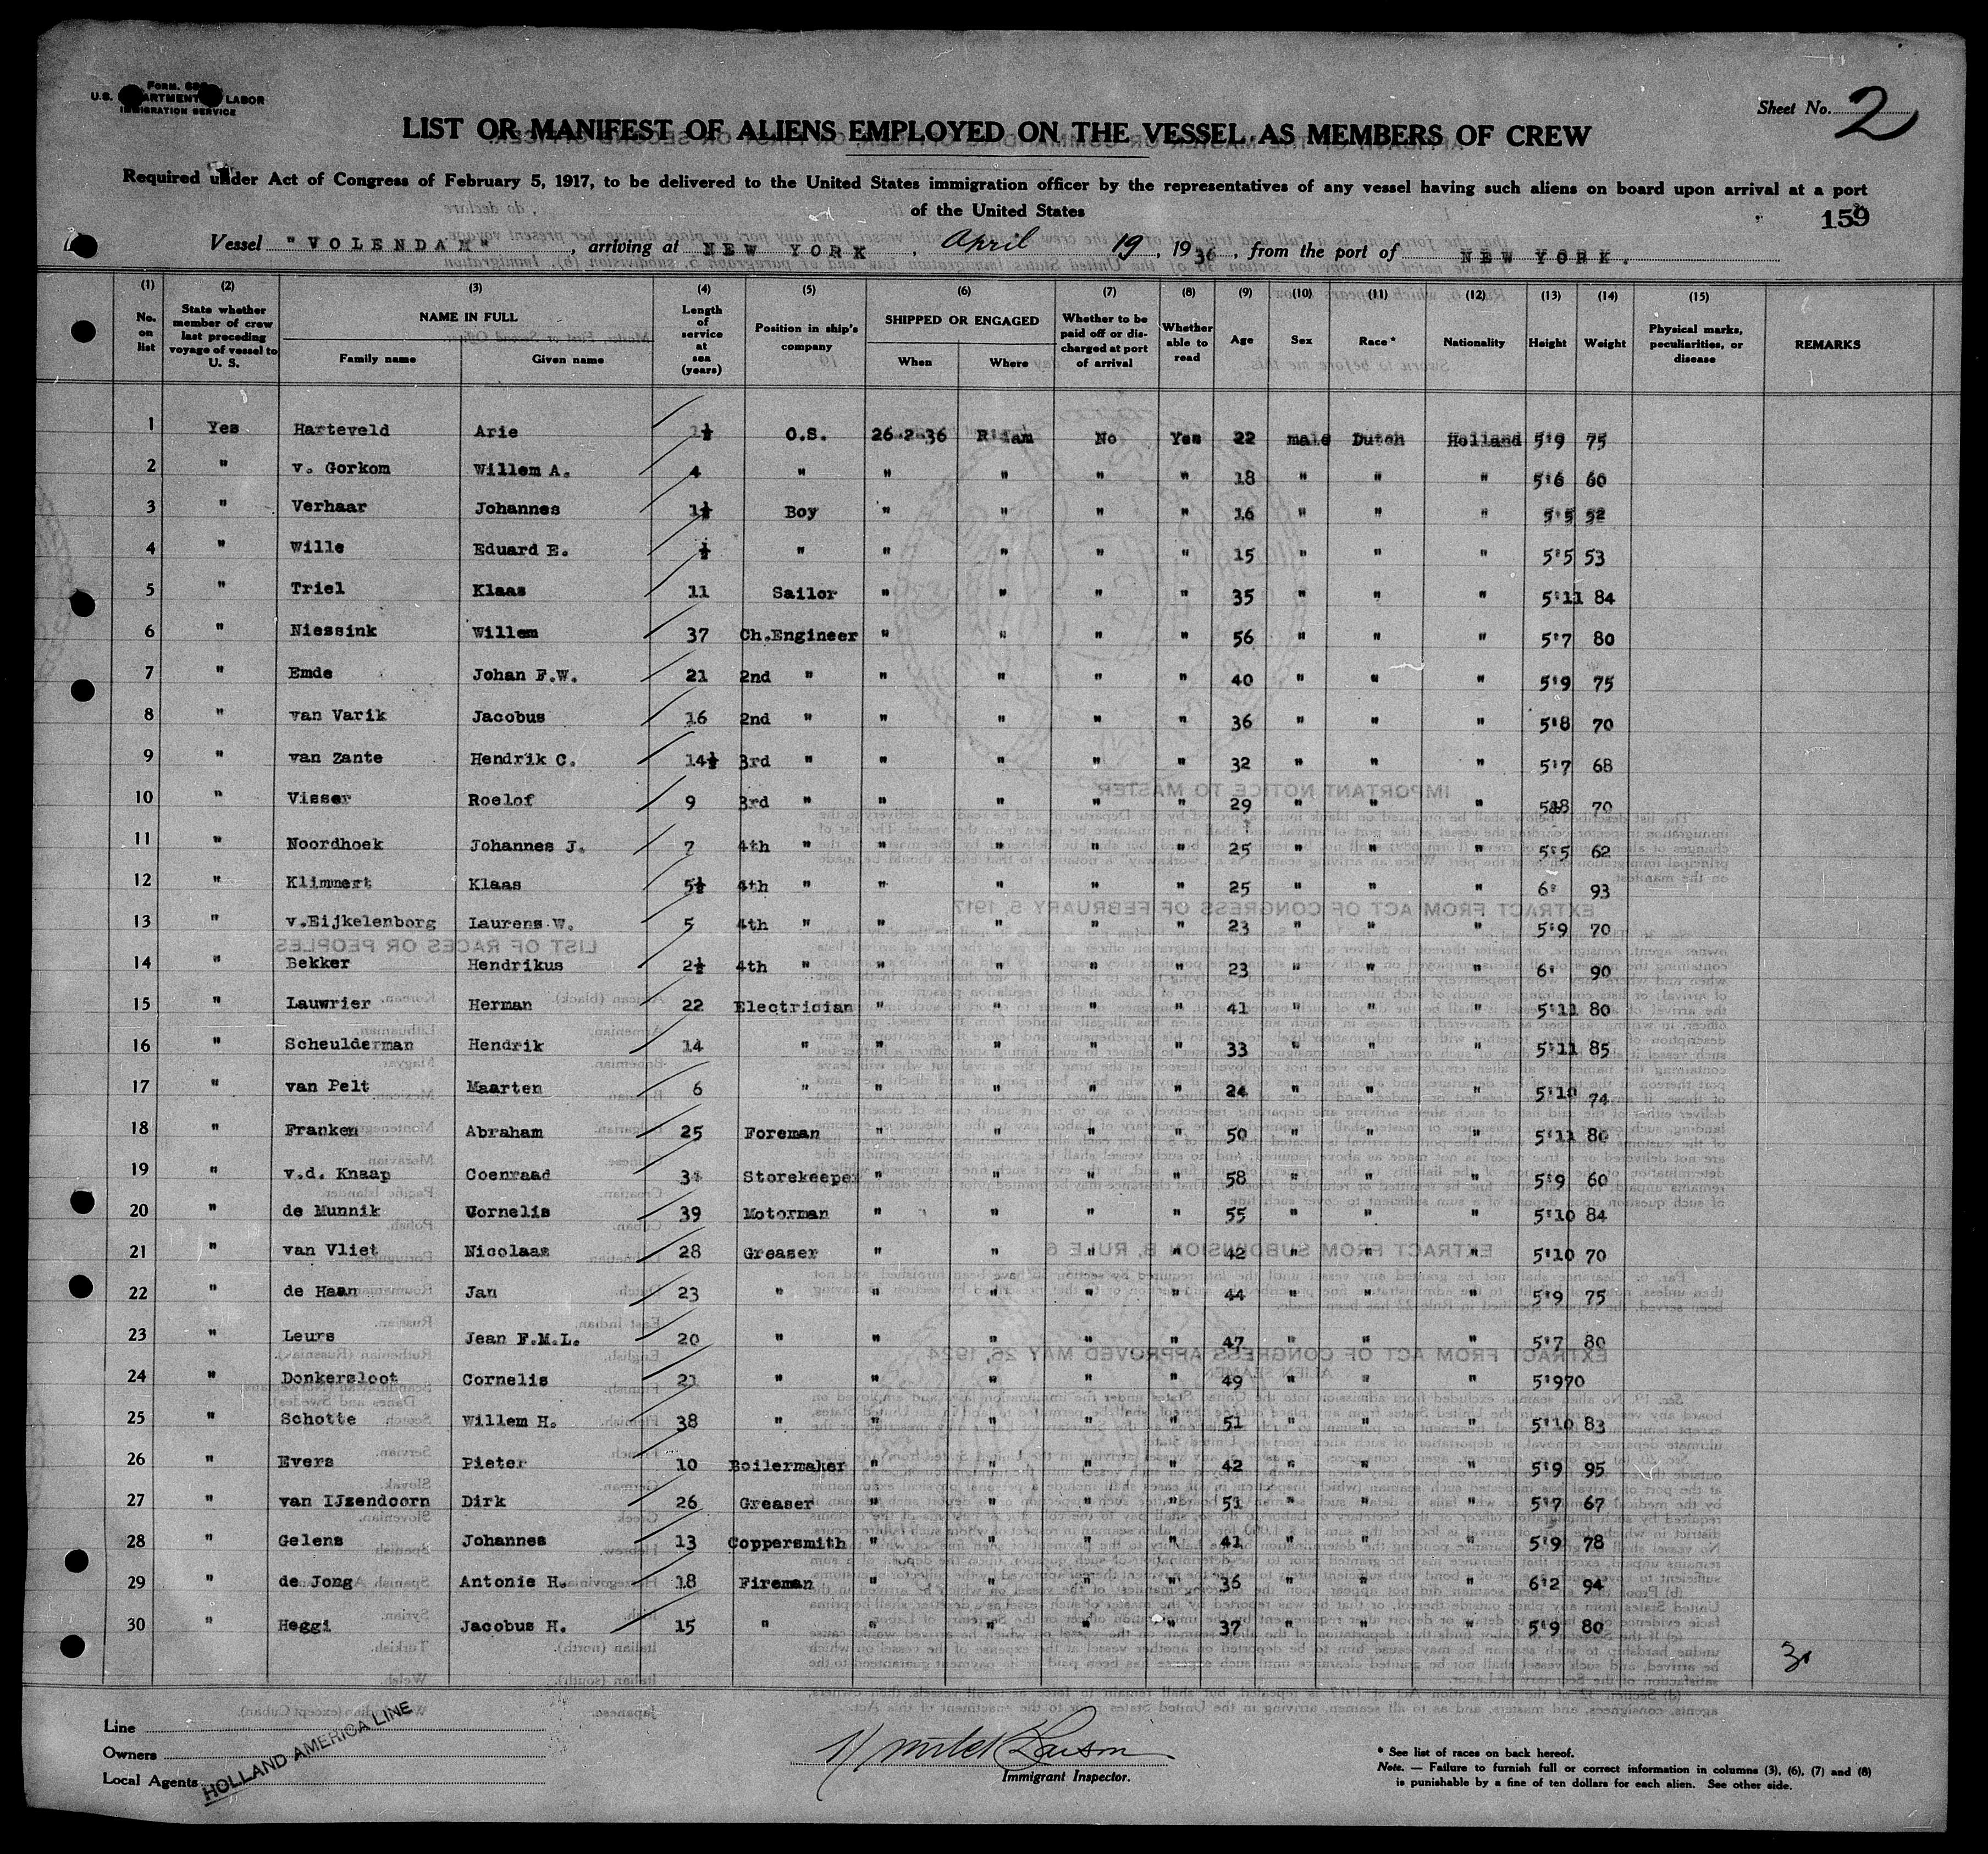 Form. 680
U.S. DEPARTMENT OF LABOR
IMMIGRATION SERVICE
Sheet No. 2
LIST OR MANIFEST OF ALIENS EMPLOYED ON THE VESSEL AS MEMBERS OF CREW
Required under Act of Congress of February 5, 1917, to be delivered to the United States immigration officer by the representatives of any vessel having such aliens on board upon arrival at a port
of the United States
159
Vessel "VOLENDAM", arriving at NEW YORK, April 19, 1936, from the port of NEW YORK.
(1) No. on list (2) State whether member of crew last preceding voyage of vessel to U. S. (3) NAME IN FULL Family name Given name (4) Length of service at sea (years) (5) Position in ship's company (6) SHIPPED OR ENGAGED When Where (7) Whether to be paid off or discharged at port of arrival (8) Whether able to read (9) Age (10) Sex (11) Race * (12) Nationality (13) Height (14) Weight (15) Physical marks, peculiarities, or disease REMARKS
1 Yes Harteveld Arie 1½ O.S. 26-2-36 R'dam No Yes 22 male Dutch Holland 5'9 75
2 " v. Gorkom Willem A. 4 " " " " " 18 " " " 5'6 60
3 " Verhaar Johannes 1½ Boy " " " " 16 " " " 5'5 52
4 " Wille Eduard E. ½ " " " " " 15 " " " 5'5 53
5 " Triel Klaas 11 Sailor " " " " 35 " " " 5'11 84
6 " Niessink Willem 37 Ch.Engineer " " " " 56 " " " 5'7 80
7 " Emde Johan F.W. 21 2nd " " " " " 40 " " " 5'9 75
8 " van Varik Jacobus 16 2nd " " " " " 36 " " " 5'8 70
9 " van Zante Hendrik C. 14½ 3rd " " " " " 32 " " " 5'7 68
10 " Visser Roelof 9 3rd " " " " " 29 " " " 5'8 70
11 " Noordhoek Johannes J. 7 4th " " " " " 25 " " " 5'5 62
12 " Klimmert Klaas 5½ 4th " " " " " 25 " " " 6' 93
13 " v.Eijkelenborg Laurens W. 5 4th " " " " " 23 " " " 5'9 70
14 " Bekker Hendrikus 2½ 4th " " " " " 23 " " " 6' 90
15 " Lauwrier Herman 22 Electrician " " " " 41 " " " 5'11 80
16 " Scheulderman Hendrik 14 " " " " " 33 " " " 5'11 85
17 " van Pelt Maarten 6 " " " " " 24 " " " 5'10 74
18 " Franken Abraham 25 Foreman " " " " 50 " " " 5'11 80
19 " v.d. Knaap Coenraad Storekeeper " " " " 58 " " " 5'9 60
20 " de Munnik Cornelis 39 Motorman " " " " 55 " " " 5'10 84
21 " van Vliet Nicolaas 28 Greaser " " " " 42 " " " 5'10 70
22 " de Haan Jan 23 " " " " " 44 " " " 5'9 75
23 " Leurs Jean F.M.L. 20 " " " " " 47 " " " 5'7 80
24 " Donkersloot Cornelis 21 " " " " " 49 " " " 5'970
25 " Schotte Willem H. 38 " " " " " 51 " " " 5'10 83
26 " Evers Pieter 10 Boilermaker " " " " 42 " " " 5'9 95
27 " van IJzendoorn Dirk 26 Greaser " " " " 51 " " " 5'7 67
28 " Gelens Johannes 13 Coppersmith " " " " 41 " " " 5'9 78
29 " de Jong Antonie H. 18 Fireman " " " " 36 " " " 6'2 94
30 " Heggi Jacobus H. 15 " " " " " 37 " " " 5'9 80
30
Line
Owners
Local Agents
HOLLAND AMERICA LINE
Immigrant Inspector.
* See list of races on back hereof.
Note. — Failure to furnish full or correct information in columns (3), (6), (7) and (8)
is punishable by a fine of ten dollars for each alien. See other side.